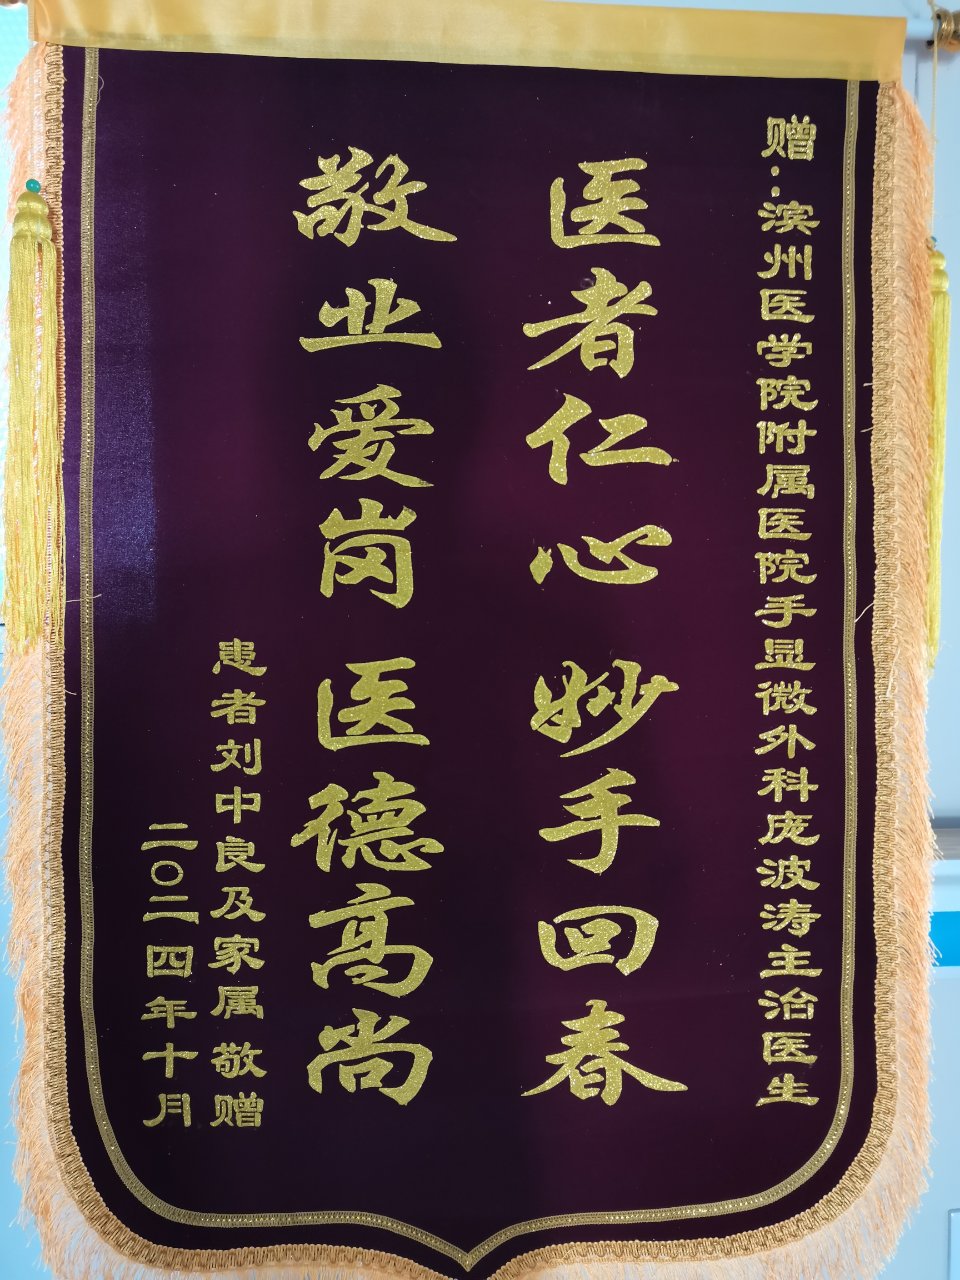 赠：滨州医学院附属医院手显微外科庞波涛主治医生
医者仁心 妙手回春
敬业爱岗 医德高尚
患者刘中良及家属敬赠
二〇二四年十月